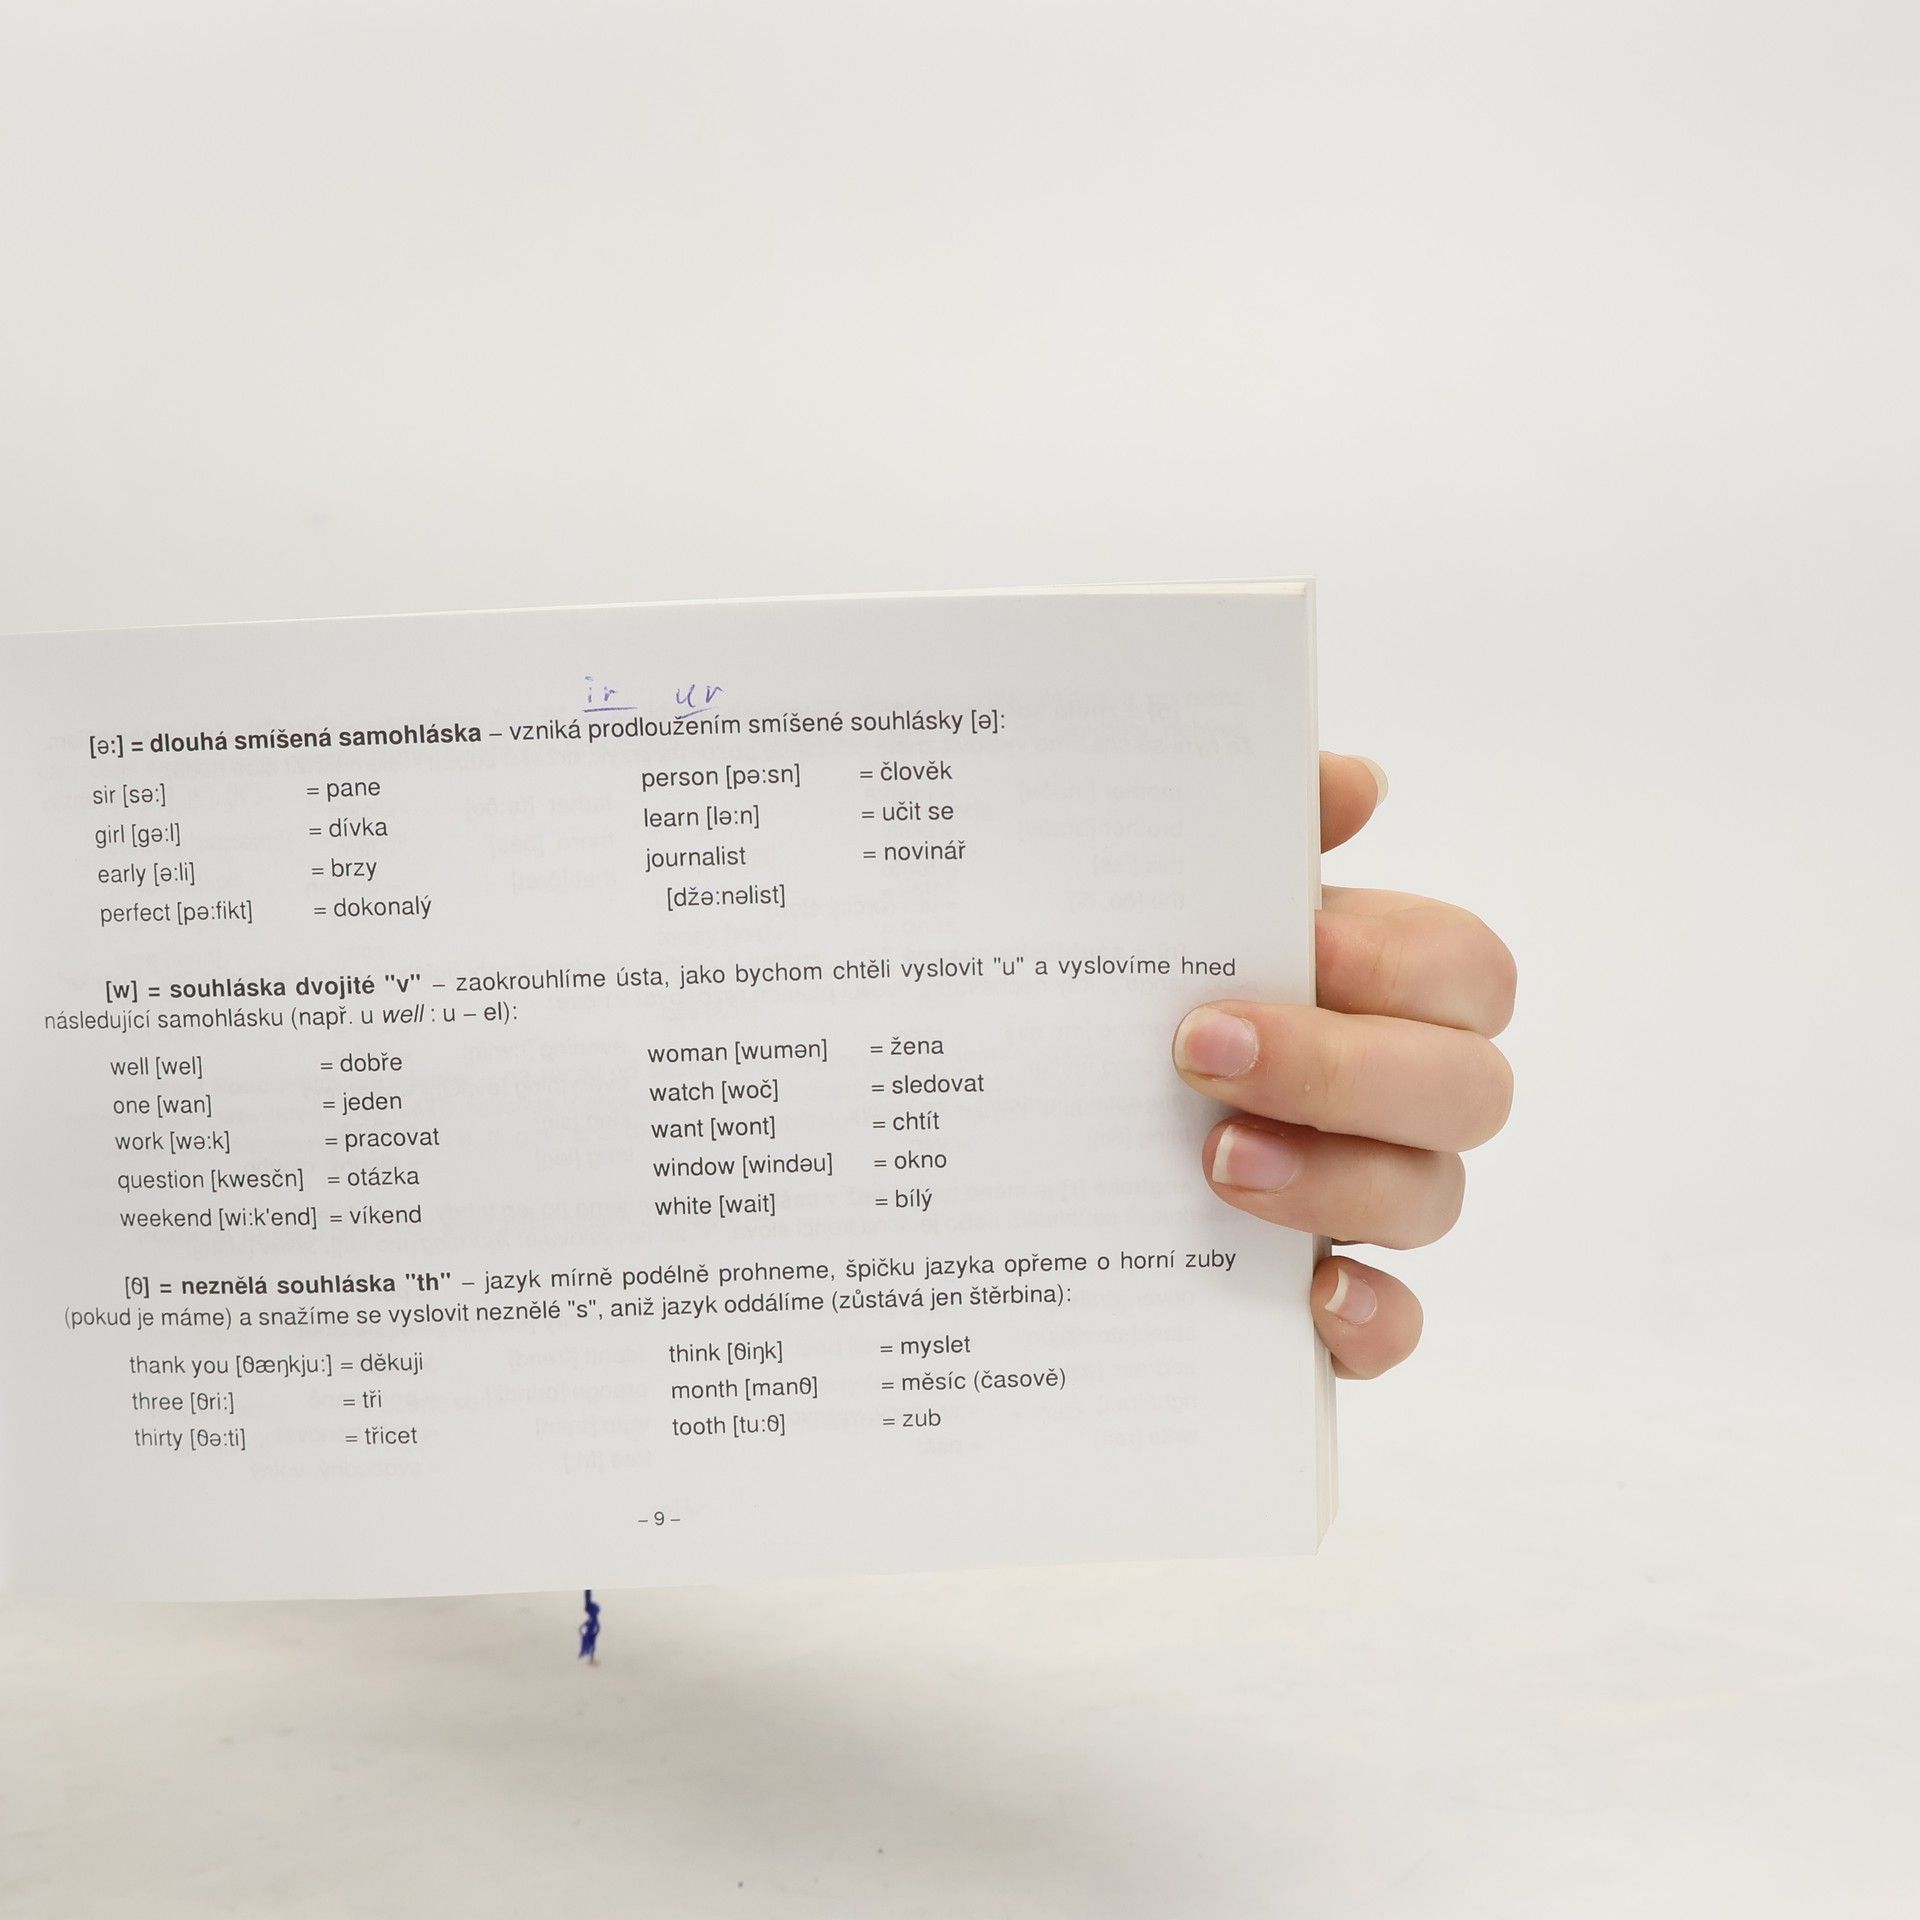 ir ur
[ə:] = dlouhá smíšená samohláska – vzniká prodloužením smíšené souhlásky [ə]:
sir [sə:] = pane person [pə:sn] = člověk
girl [gə:l] = dívka learn [lə:n] = učit se
early [ə:li] = brzy journalist = novinář
perfect [pə:fikt] = dokonalý [džə:nəlist]
[w] = souhláska dvojité "v" – zaokrouhlíme ústa, jako bychom chtěli vyslovit "u" a vyslovíme hned
následující samohlásku (např. u well : u – el):
well [wel] = dobře woman [wumən] = žena
one [wan] = jeden watch [woč] = sledovat
work [wə:k] = pracovat want [wont] = chtít
question [kwesčn] = otázka window [windəu] = okno
weekend [wi:k'end] = víkend white [wait] = bílý
[θ] = neznělá souhláska "th" – jazyk mírně podélně prohneme, špičku jazyka opřeme o horní zuby
(pokud je máme) a snažíme se vyslovit neznělé "s", aniž jazyk oddálíme (zůstává jen štěrbina):
thank you [θæŋkju:] = děkuji think [θiŋk] = myslet
three [θri:] = tři month [manθ] = měsíc (časově)
thirty [θə:ti] = třicet tooth [tu:θ] = zub
– 9 –